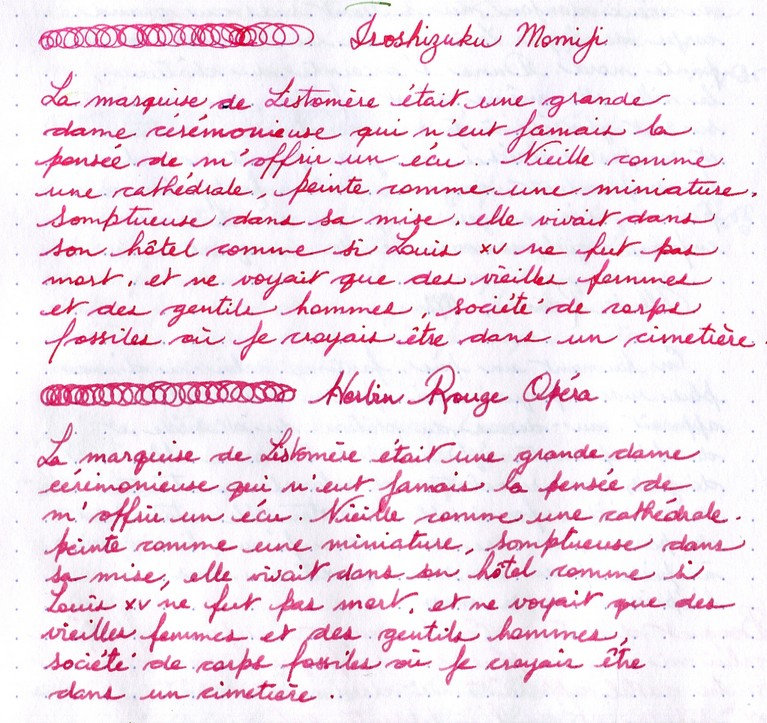 Iroshizuku Momiji
La marquise de Listomère était une grande
dame cérémonieuse qui n'eut jamais la
pensée de m'offrir un écu. Vieille comme
une cathédrale, peinte comme une miniature,
somptueuse dans sa mise, elle vivait dans
son hôtel comme si Louis XV ne fut pas
mort, et ne voyait que des vieilles femmes
et des gentils hommes, société de corps
fossiles où je croyais être dans un cimetière.
Herbin Rouge Opéra
La marquise de Listomère était une grande dame
cérémonieuse qui n'eut jamais la pensée de
m'offrir un écu. Vieille comme une cathédrale,
peinte comme une miniature, somptueuse dans
sa mise, elle vivait dans son hôtel comme si
Louis XV ne fut pas mort, et ne voyait que des
vieilles femmes et des gentils hommes,
société de corps fossiles où je croyais être
dans un cimetière.